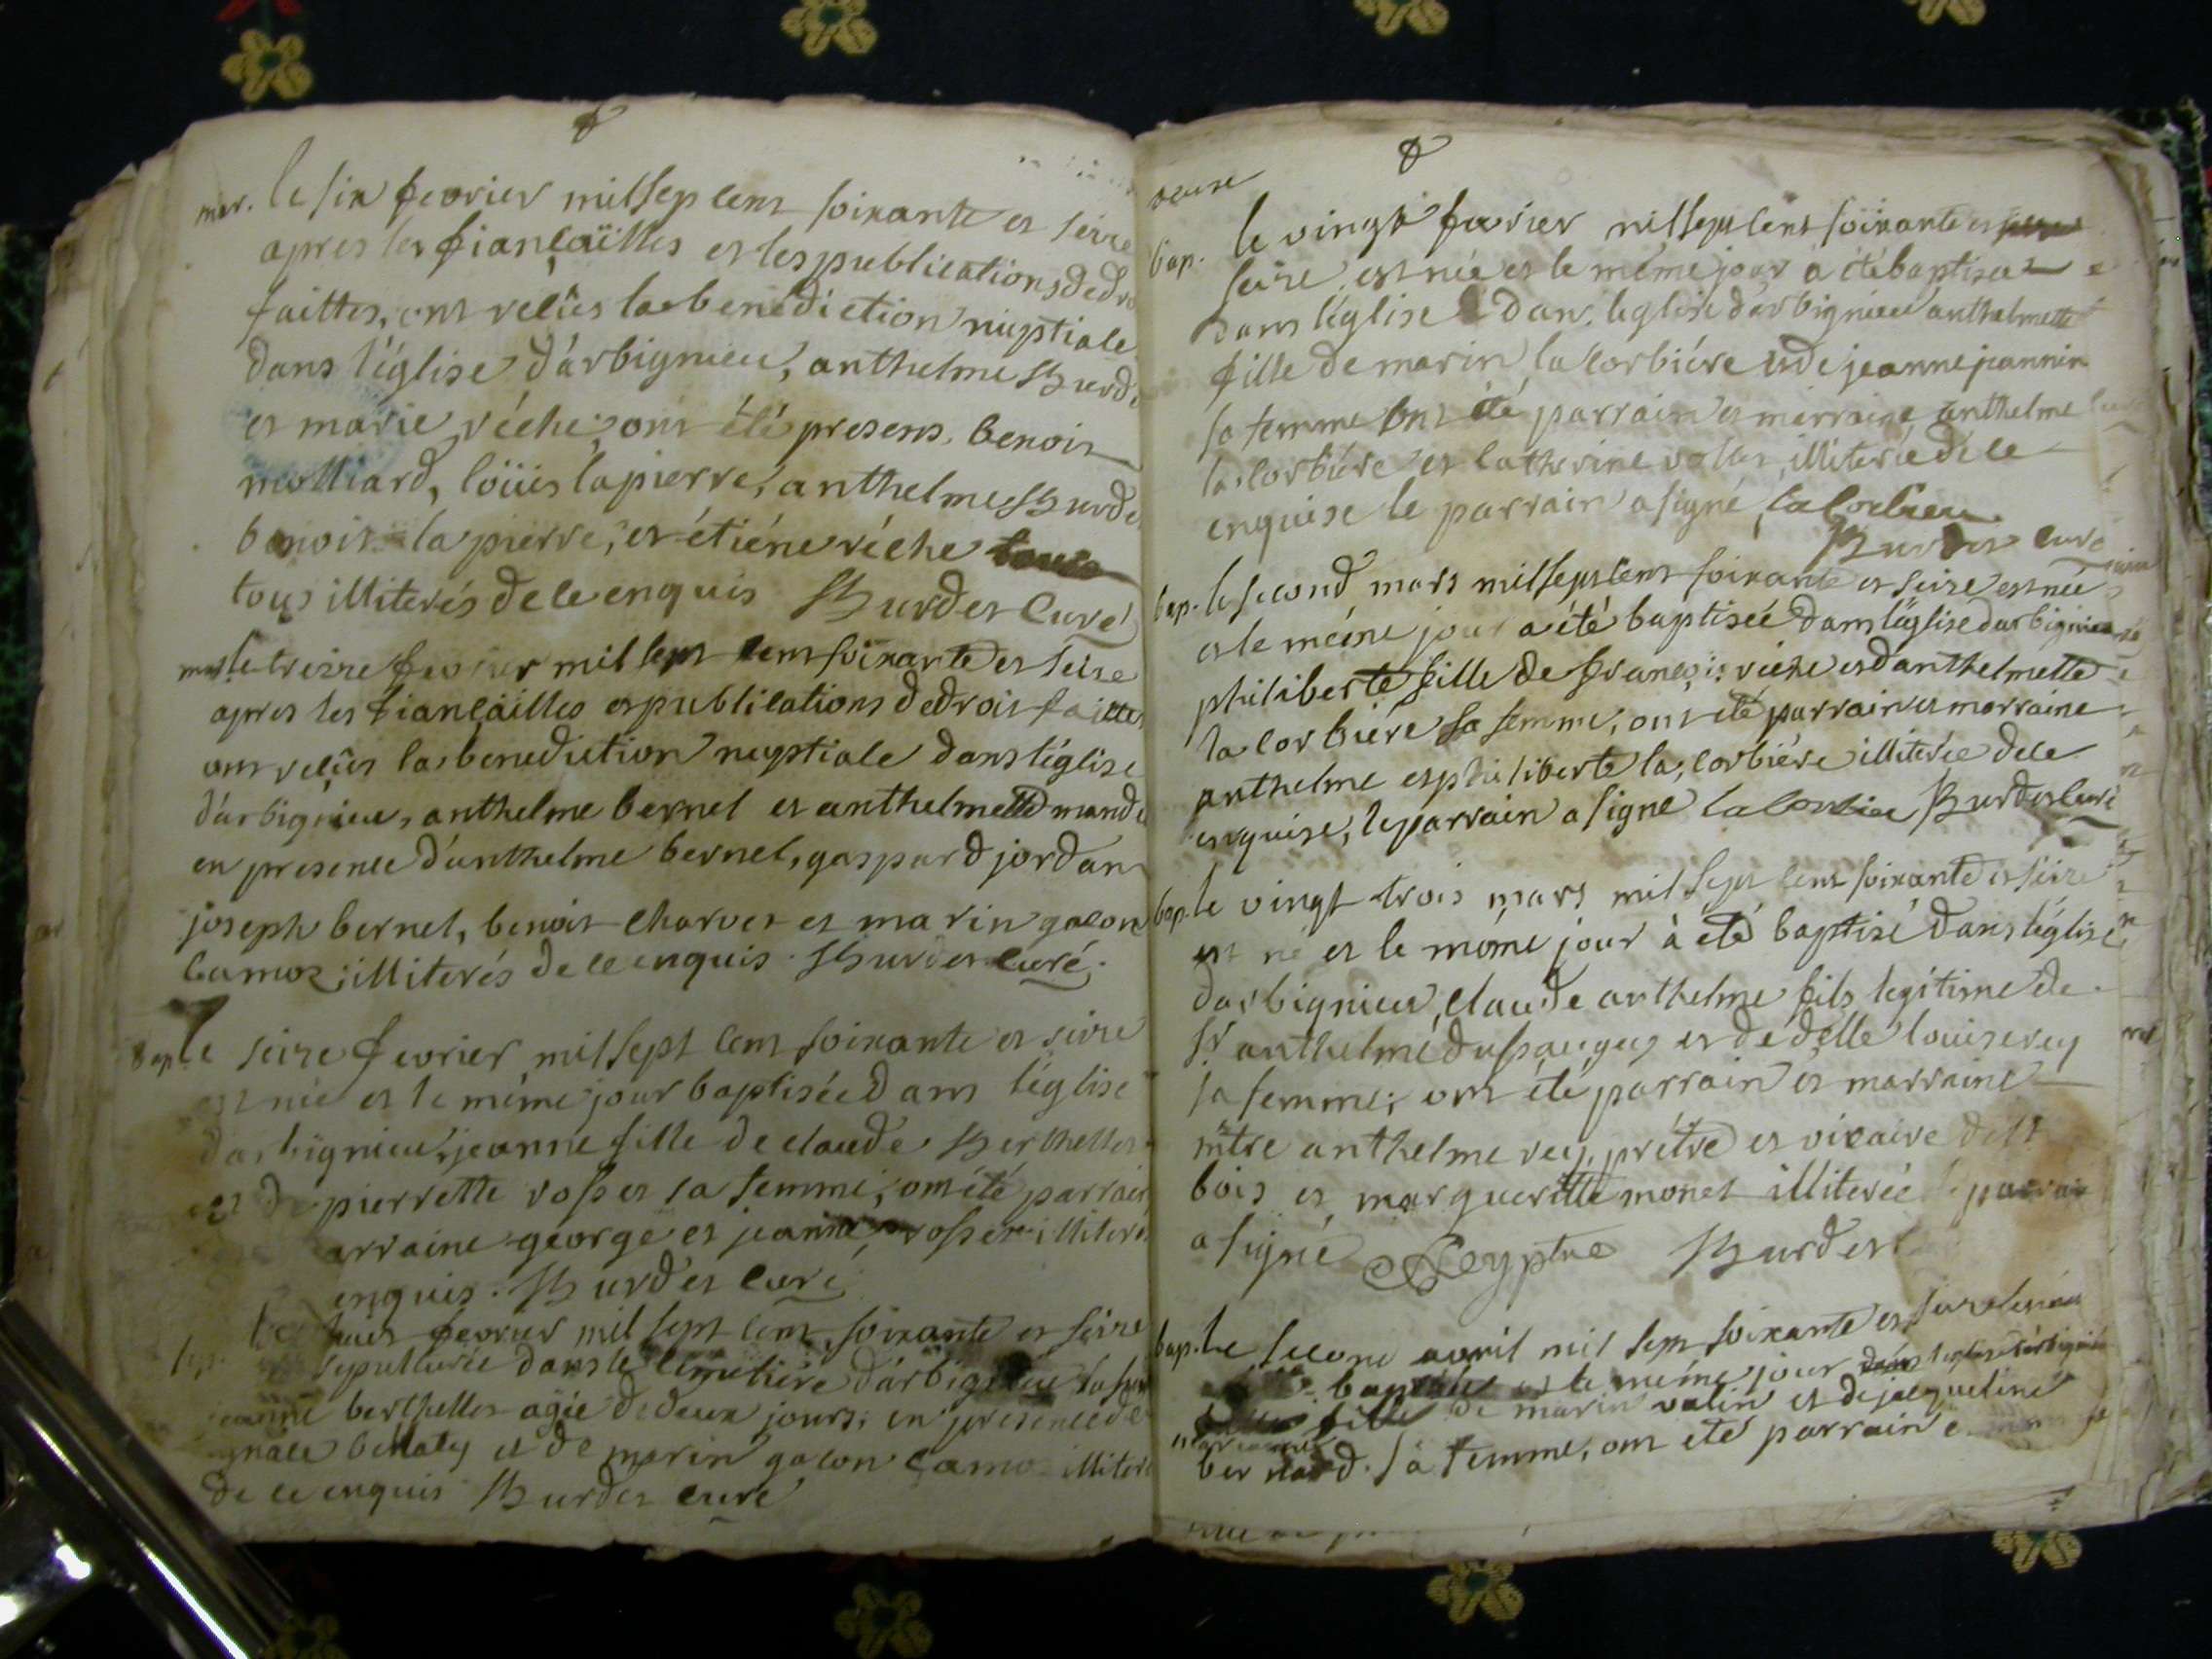 mar. le six fevrier mil sept cent soixante et seize
apres les fiançäilles et les publications de dro
faittes, ont reçûes la benediction nuptiale
dans l'église d'arbignieu, anthelme Burde
et marie réche; ont été presens, benoit
molliard, loüis lapierre, anthelme Burde
benoit la pierre, et étiéne réche
tous illiterés de ce enquis Burdet Curé
mar. le treize fevrier mil sept cent soixante et seize
apres les fiançäilles et publications de droit faittes
ont reçûes la benediction nuptiale dans l'église
d'arbignieu, anthelme bernel et anthelmette mande
en presence d'anthelme bernel, gaspard jordan
joseph bernel, benoit charvet et marin galon
camoz; illiterés de ce enquis. Burdet curé.
Bap. le seize fevrier mil sept cent soixante et seize
est née et le méme jour baptisée dans l'église
darbignieu, jeanne fille de claude Berthellet
et de pierrette rosset sa femme; ont été parrain
arraine george et jeanne rosset illiterés
enquis. Burdet curé
huit fevrier mil sept cent soixante et seize
sepulturée dans le cimetiére d'arbignieu
jeanne berthellet agée de deux jours; en presence de
et de marin galon camoz illiteré
de ce enquis Burdet curé
bap. le vingt fevrier mil sept cent soixante et
seize, est née et le méme jour à été baptisée
dans l'église dans l'eglise d'arbignieu anthelmette
fille de marin la corbiére et de jeanne jeannin
sa femme ont été parrain et marraine anthelme
la corbiére et catherine illiterée de ce
enquise le parrain a signé, lacorbiere
Burdet curé
bap. le second mars mil sept cent soixante et seize est née
et le méme jour a été baptisée dans l'église darbignieu
philiberte fille de françois réche et d'anthelmette
la corbiére sa femme, ont été parrain et marraine
anthelme et philiberte la corbiére illiterée de ce
enquise, le parrain a signé lacorbiere Burdet curé
bap. le vingt trois mars mil sept cent soixante et seize
est né et le méme jour à été baptisé dans l'église
darbignieu, claude anthelme fils legitime de
sr anthelme dupaugey et de delle louise rey
sa femme; ont été parrain et marraine
mtre anthelme rey, prétre et vicaire de st
bois et margueritte monet illiterée le parrain
a signé Rey ptre Burdet
bap. Le second avril mil sept soixante et seize est née
baptisée et le méme jour dans l'eglise d'arbignieu
fille de marin valin et de jacqueline
bernard sa femme, ont été parrain e